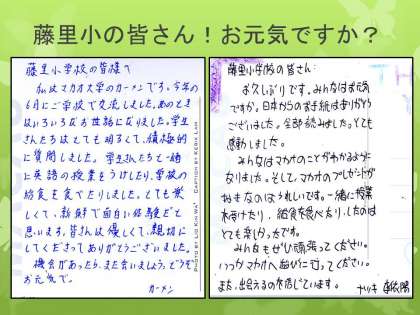 藤里小の皆さん！お元気ですか？
藤里小学校の皆様へ
私はマカオ大学のカーメンです。今年の
6月にご学校で交流しました。あのとき
はいろいろお世話になりました。学生
さんたちはとても明るくて、積極的
に質問しました。学生さんたちと一緒
に英語の授業をうけたり、学校の
給食を食べたりしました。とても楽
しくて、新鮮で面白い経験だと
思います。皆さんは優しくて、親切に
してくださってありがとうございました。
機会があったら、また会いましょう。どうぞ
お元気で。
カーメン
藤里小学校の皆さん：
お久しぶりです。みんなはお元気
ですか。日本からのお手紙ありがとう
ございました。全部読みました。とても
感動しました。
みんなはマカオのことがわかるように
なりました。そして、マカオの
うれしいです。一緒に授業
を受けたり、給食を食べたり、したのは
とても楽しかったです。
みんなもぜひ頑張ってください。
いつかマカオへ遊びに行ってください。
また、出会えるのを待しています。
ナツキ